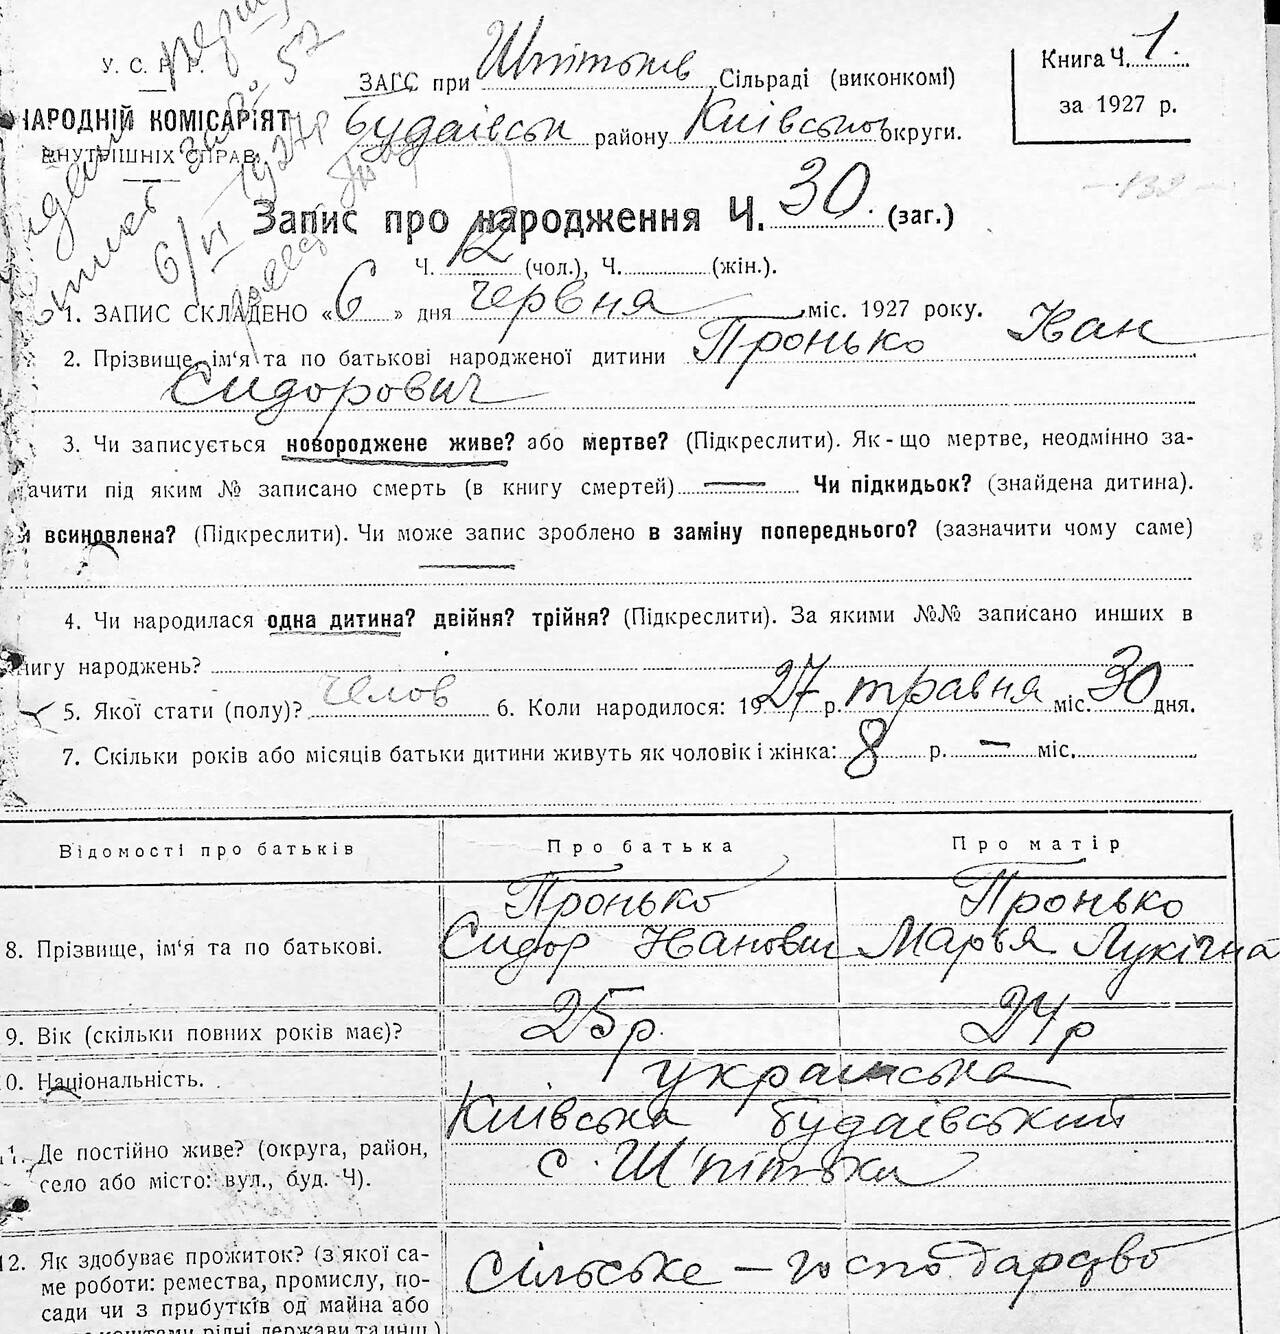 У. С. Р. Р.
НАРОДНІЙ КОМІСАРІЯТ
ВНУТРІШНІХ СПРАВ
ЗАГС при Шпітьків Сільраді (виконкомі)
Будаївськ району Київської округи.
Книга Ч. 1.
за 1927 р.
6/VI 1927 р
Запис про народження Ч. 30. (заг.)
Ч. 12 (чол.), Ч. (жін.).
1. ЗАПИС СКЛАДЕНО «6» дня червня міс. 1927 року.
2. Прізвище, ім‘я та по батькові народженої дитини Пронько Іван
Сидорович
3. Чи записується новороджене живе? або мертве? (Підкреслити). Як-що мертве, неодмінно за-
ачити під яким № записано смерть (в книгу смертей) — Чи підкидьок? (знайдена дитина).
и всиновлена? (Підкреслити). Чи може запис зроблено в заміну попереднього? (зазначити чому саме)
—
4. Чи народилася одна дитина? двійня? трійня? (Підкреслити). За якими №№ записано инших в
книгу народжень?
5. Якої стати (полу)? челов 6. Коли народилося: 1927 р. травня міс. 30 дня.
7. Скільки років або місяців батьки дитини живуть як чоловік і жінка: 8 р. — міс.
Відомості про батьків Про батька Про матір
8. Прізвище, ім‘я та по батькові. Пронько Сидор Іванович Пронько Марья Лукічна
9. Вік (скільки повних років має)? 25р. 24р
0. Національність. українська
11. Де постійно живе? (округа, район, Київська Будаївський
село або місто: вул., буд. Ч). с. Шпітьки
12. Як здобуває прожиток? (з якої са- Сільське — господарство
ме роботи: ремества, промислу, по-
сади чи з прибутків од майна або
коштами рідні держави та инш.)